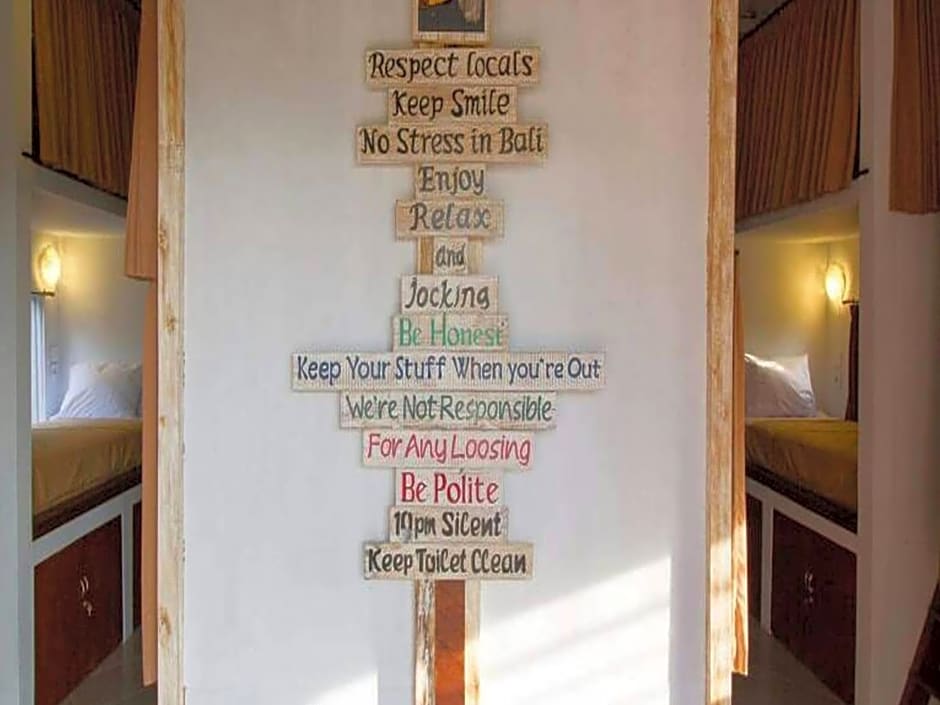 Respect locals
Keep Smile
No Stress in Bali
Enjoy
Relax
and
Jocking
Be Honest
Keep Your Stuff When you're Out
We're Not Responsible
For Any Loosing
Be Polite
10pm Silent
Keep Toilet Clean